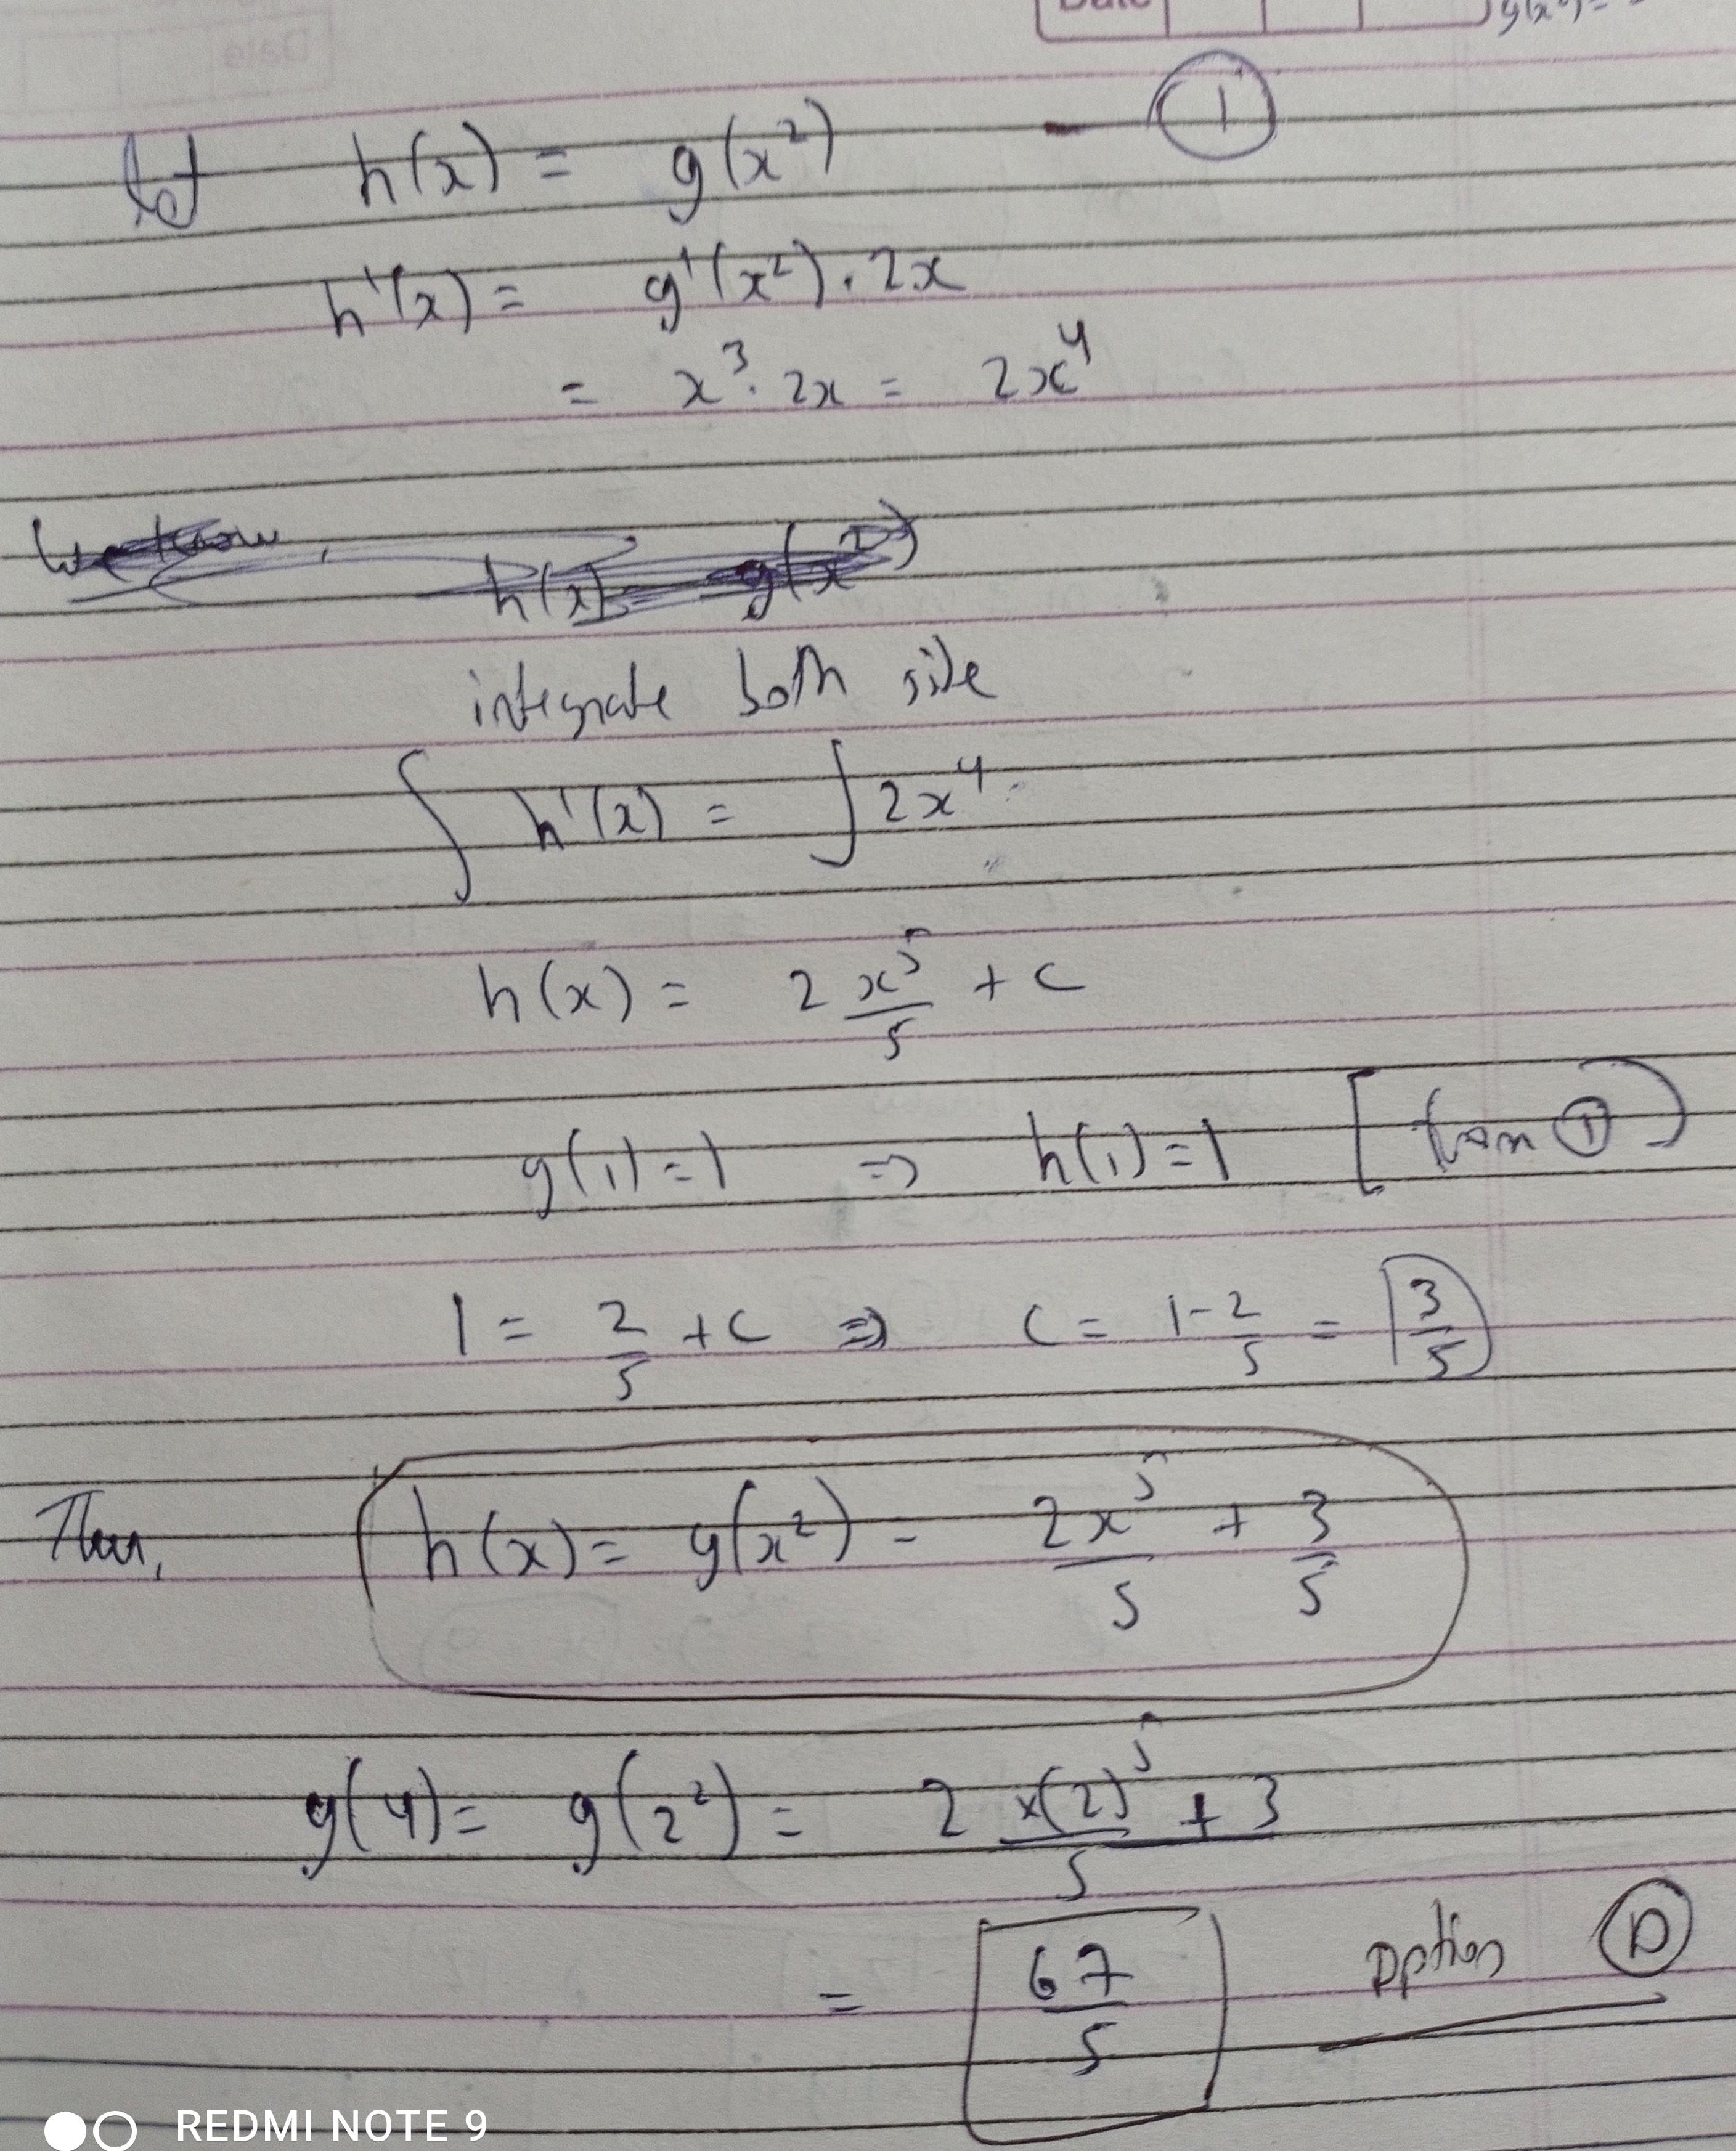 Date
Date
g(x²) =
let h(x) = g(x²) - ①
h'(x) = g'(x²) · 2x
= x³ · 2x = 2x⁴
We know,
h(x) = g(x²)
integrate both side
∫ h'(x) = ∫ 2x⁴
h(x) = 2 x⁵/5 + c
g(1) = 1 ⇒ h(1) = 1 [from ①)
1 = 2/5 + c ⇒ c = 1 - 2/5 = 3/5
Then, h(x) = g(x²) = 2x⁵/5 + 3/5
g(4) = g(2²) = 2 x(2)⁵ + 3/5
= 67/5 option Ⓓ
REDMI NOTE 9